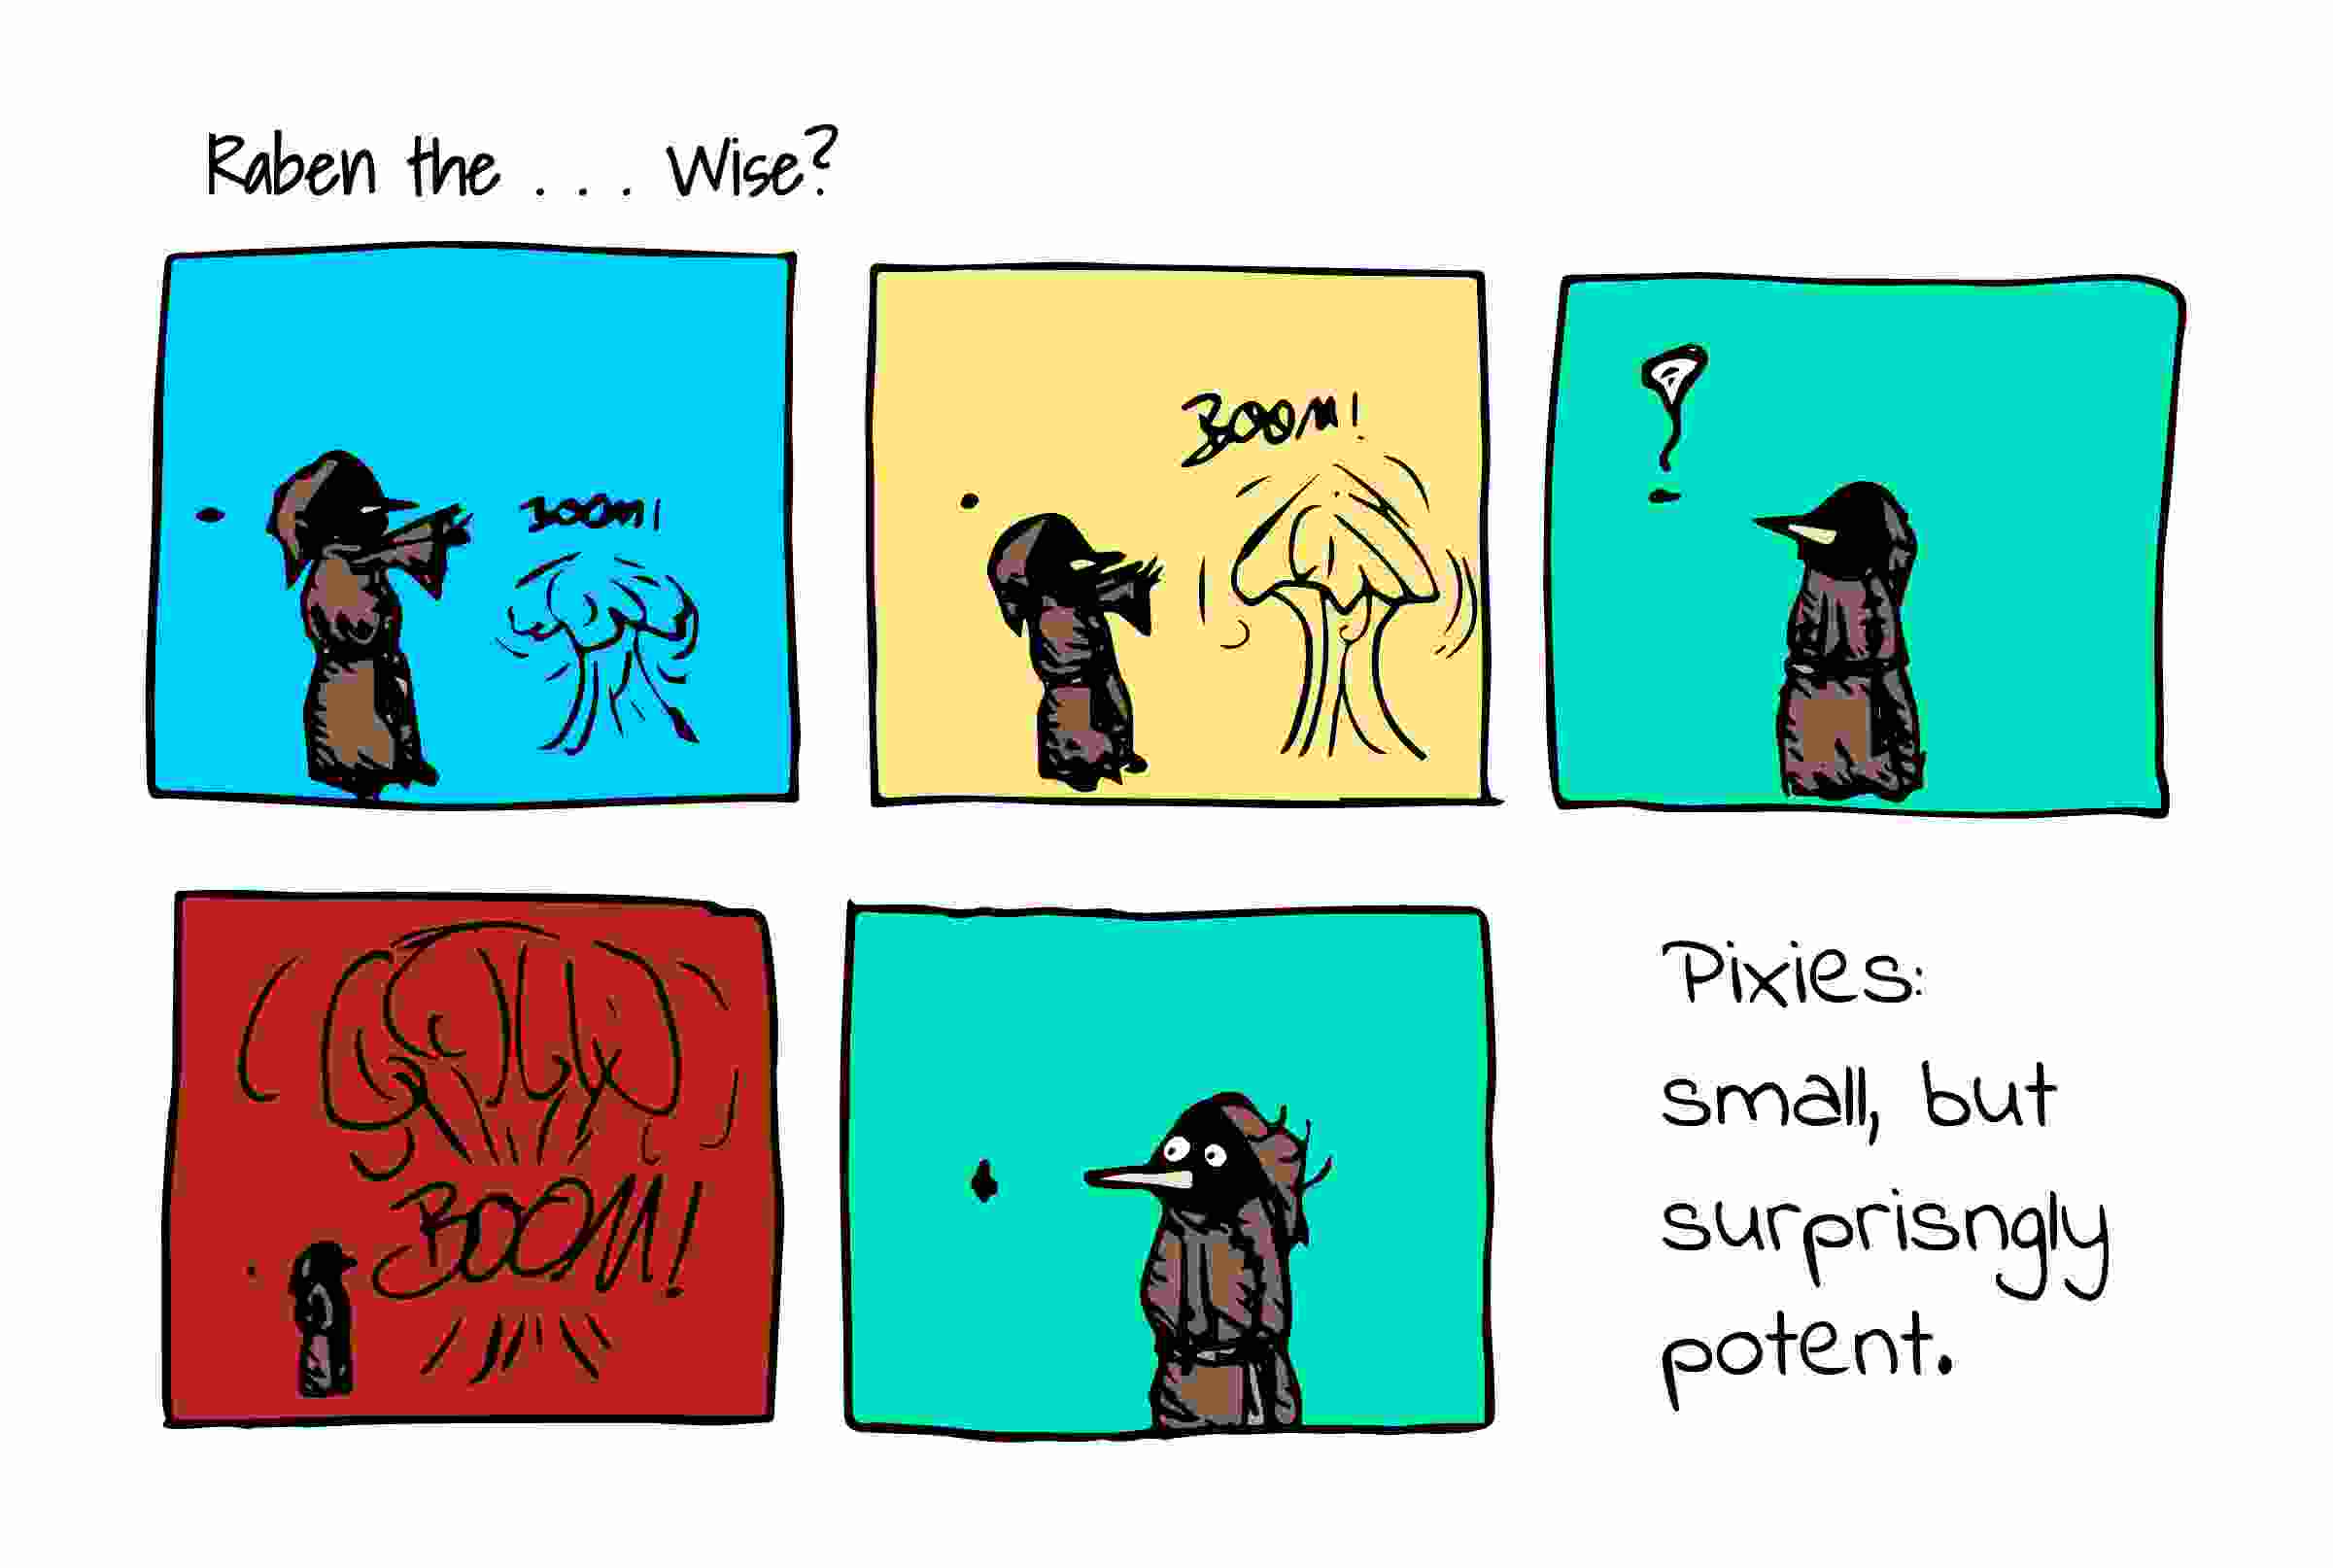 Raben the . . . Wise?
BOOM!
BOOM!
BOOM!
Pixies:
small, but
surprisngly
potent.